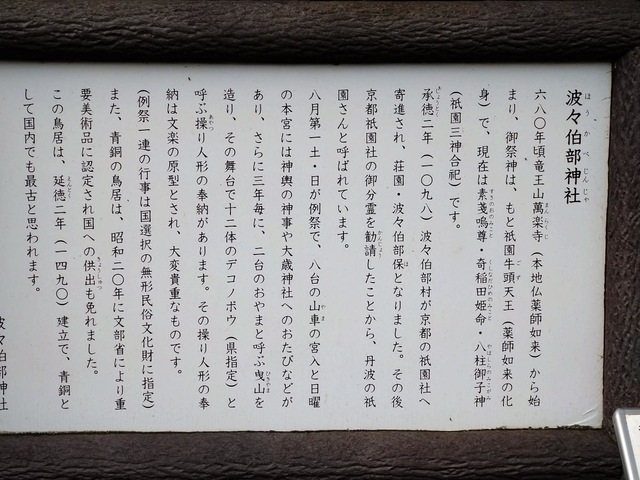 波々伯部神社
六八〇年頃竜王山萬楽寺（本地仏薬師如来）から始
まり、御祭神は、もと祇園牛頭天王（薬師如来の化
身）で、現在は素戔嗚尊・奇稲田姫命・八柱御子神
（祇園三神合祀）です。
承徳二年（一〇九八）波々伯部村が京都の祇園社へ
寄進され、荘園・波々伯部保となりました。その後
京都祇園社の御分霊を勧請したことから、丹波の祇
園さんと呼ばれています。
八月第一土・日が例祭で、八台の山車の宮入と日曜
の本宮には神輿の神事や大歳神社へのおたびなどが
あり、さらに三年毎に、二台のおやまと呼ぶ曳山を
造り、その舞台で十二体のデコノボウ（県指定）と
呼ぶ操り人形の奉納があります。その操り人形の奉
納は文楽の原型とされ、大変貴重なものです。
（例祭一連の行事は国選択の無形民俗文化財に指定）
また、青銅の鳥居は、昭和二〇年に文部省により重
要美術品に認定され国への供出も免れました。
この鳥居は、延徳二年（一四九〇）建立で、青銅と
して国内でも最古と思われます。
波々伯部神社